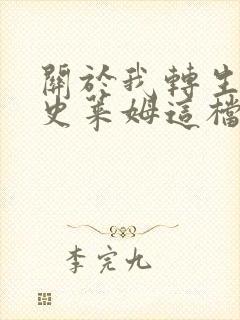 關於我轉生
史萊姆這檔
李完九